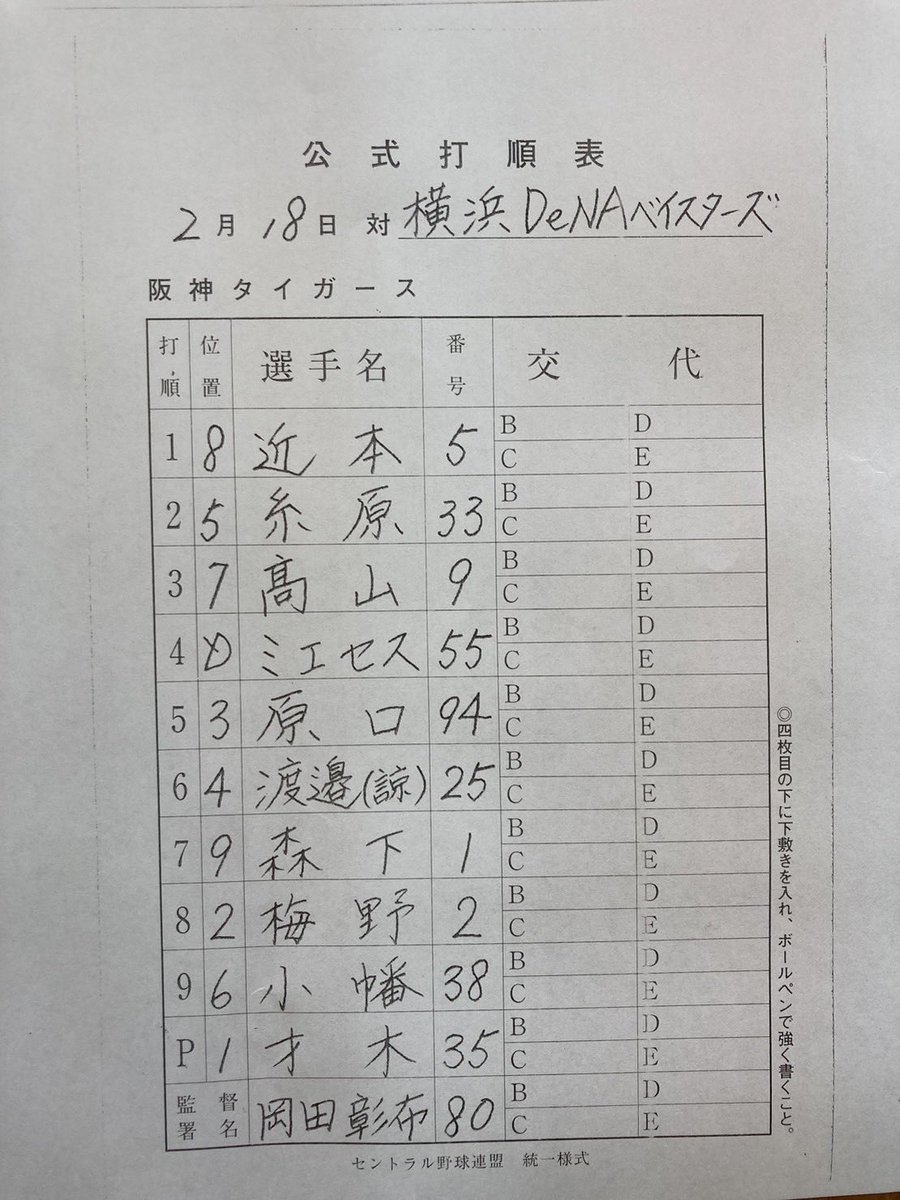 公式打順表
2月18日 対 横浜DeNAベイスターズ
阪神タイガース
打順 位置 選手名 番号 交代
1 8 近本 5 B D C E
2 5 糸原 33 B D C E
3 7 髙山 9 B D C E
4 D ミエセス 55 B D C E
5 3 原口 94 B D C E
6 4 渡邉(諒) 25 B D C E
7 9 森下 1 B D C E
8 2 梅野 2 B D C E
9 6 小幡 38 B D C E
P 1 才木 35 B D C E
監督署名 岡田彰布 80 B D C E
セントラル野球連盟 統一様式
◎四枚目の下に下敷きを入れ、ボールペンで強く書くこと。